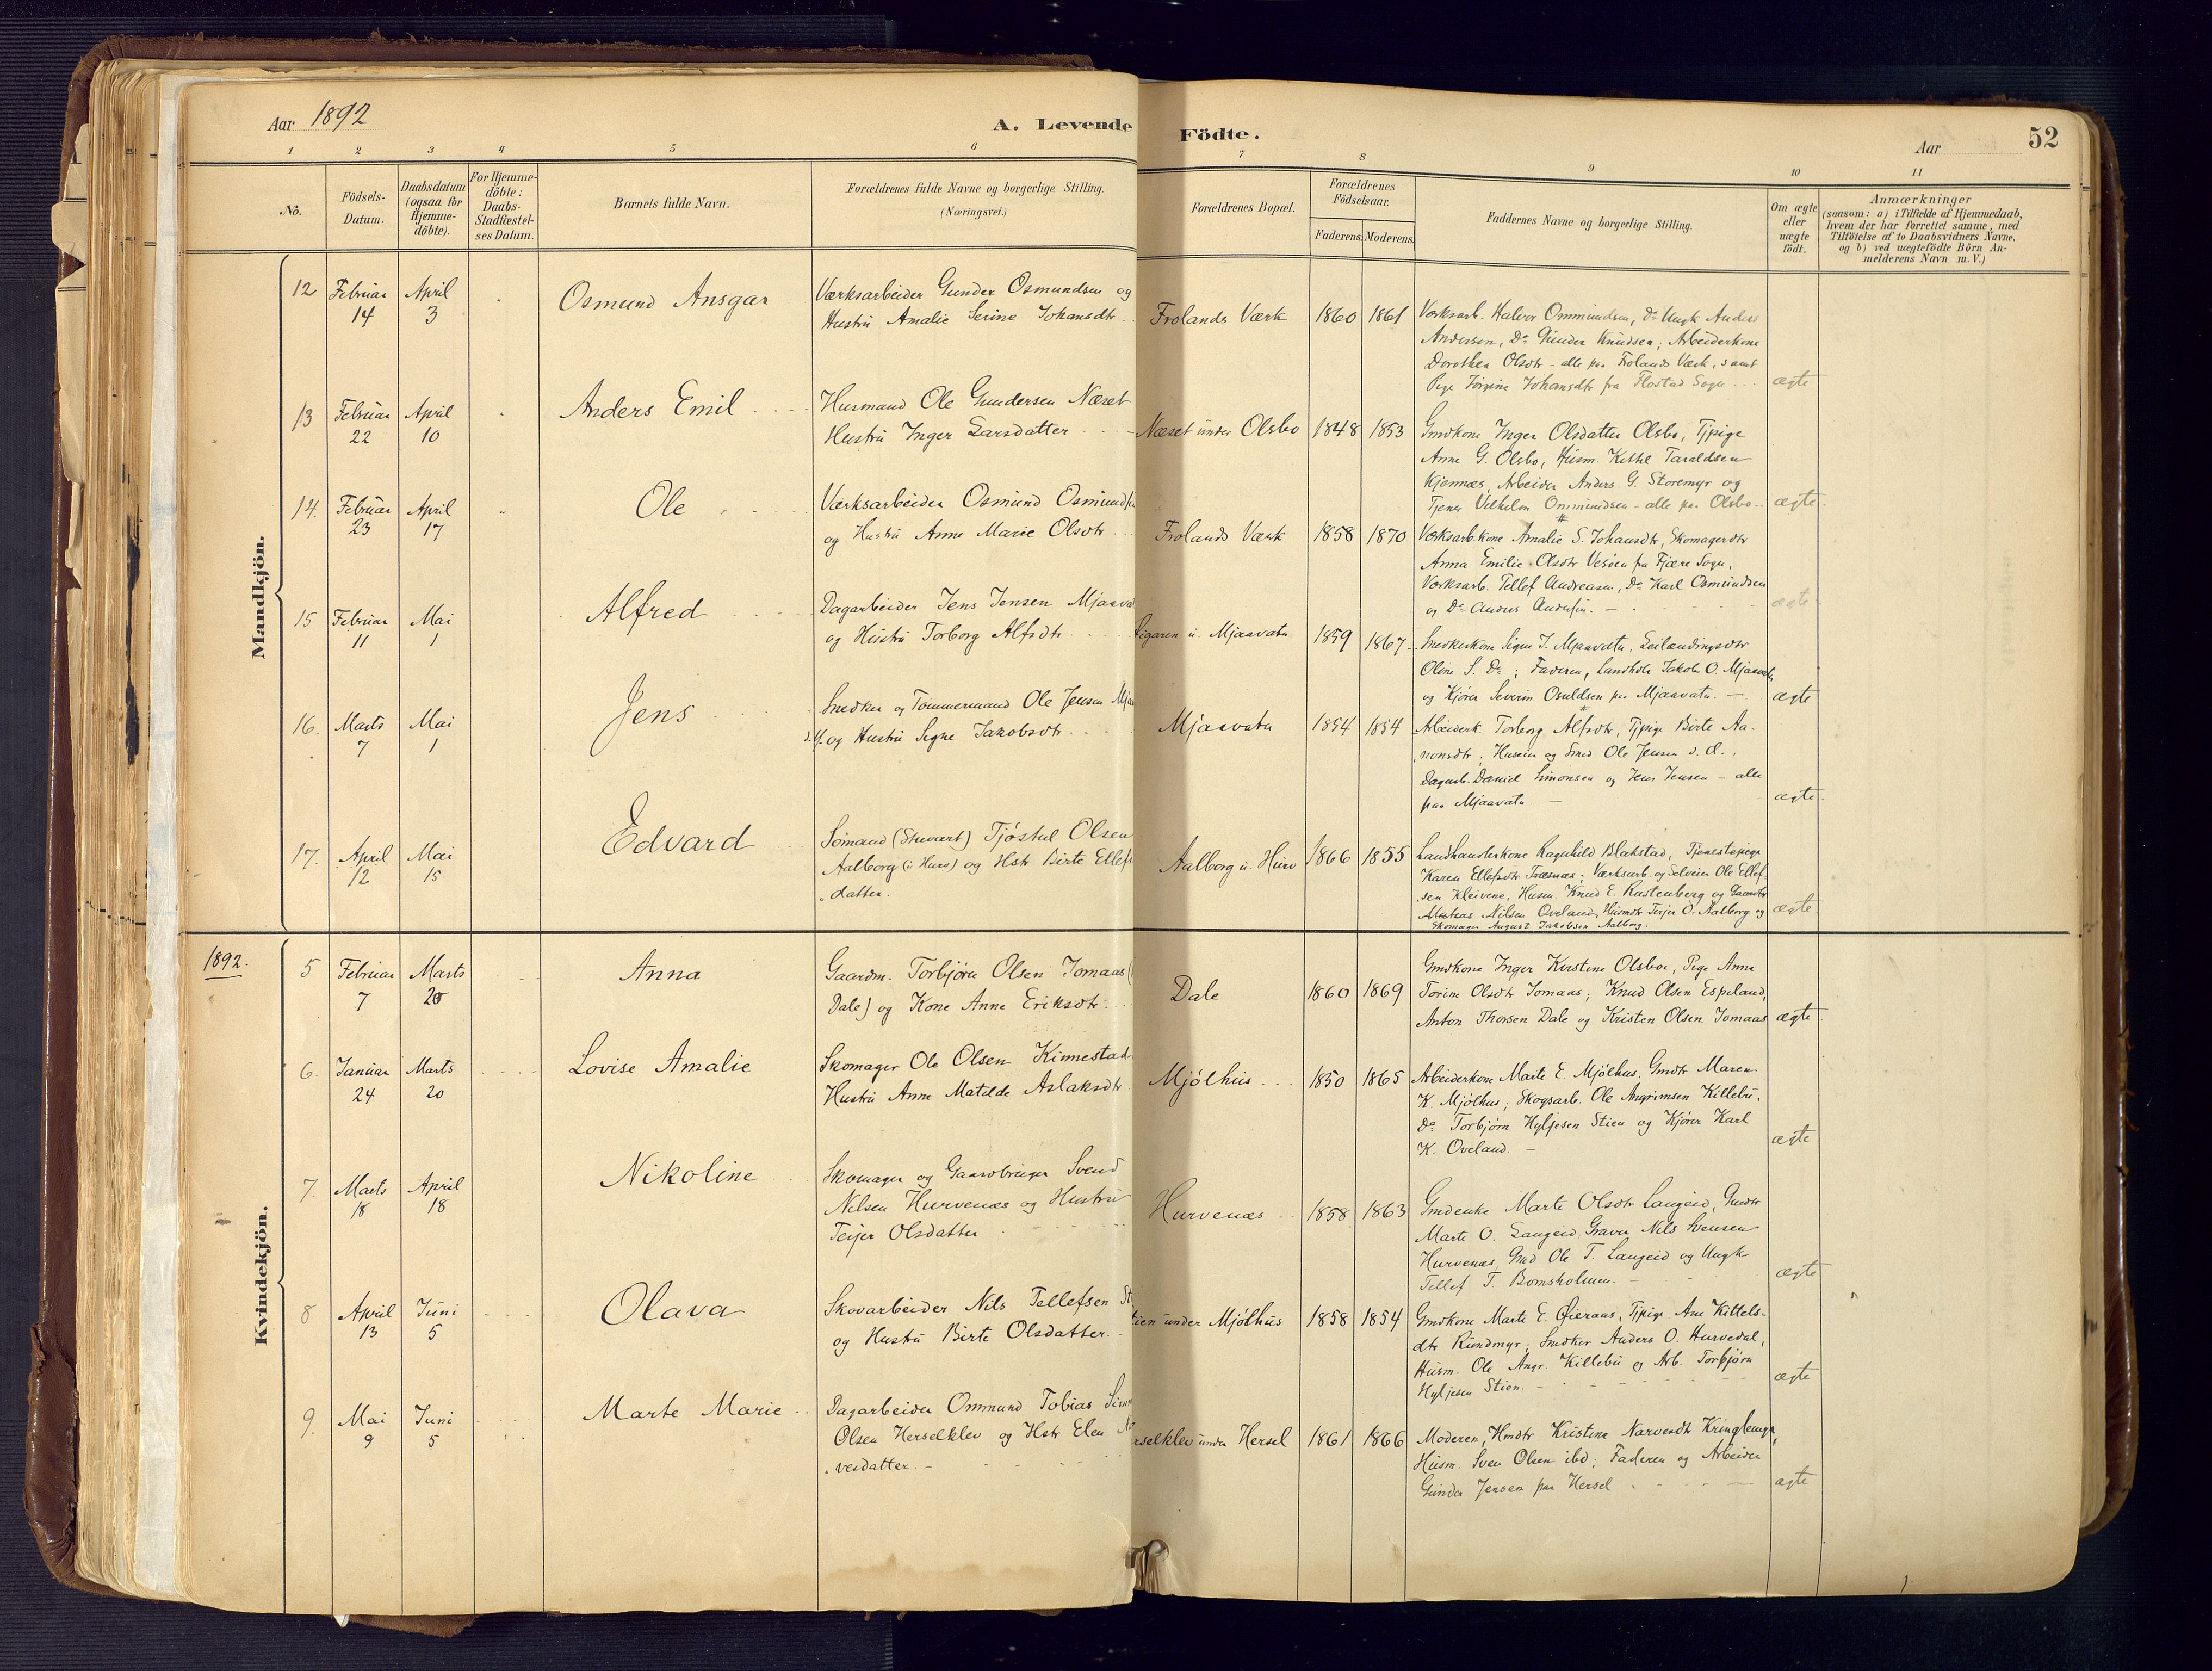 Aar 1892
A. Levende Födte.
Aar
52
1 2 3 4 5 6 7 8 9 10 11
No.
Födsels-Datum.
Daabsdatum (ogsaa for Hjemme-döbte).
For Hjemme-döbte: Daabs-Stadfæstel-ses Datum.
Barnets fulde Navn.
Forældrenes fulde Navne og borgerlige Stilling. (Næringsvei.)
Forældrenes Bopæl.
Forældrenes Födselsaar.
Faderens. Moderens.
Faddernes Navne og borgerlige Stilling.
Om ægte eller uægte födt.
Anmærkninger
(saasom: a) i Tilfælde af Hjemmedaab,
hvem der har forrettet samme, med
Tilföielse af to Daabsvidners Navne,
og b) ved uægtefödte Börn An-
melderens Navn m. V.)
Mandkjön.
12 Februar 14 April 3 Osmund Ansgar
Værksarbeider Gunder Osmundsen og
Hustru Amalie Serine Johansdtr.
Frolands Værk 1860 1861
Værksarb. Halvor Ommundsen, Do Ungk. Anders
Andersen, Do Gunder Knudsen; Arbeiderkone
Dorothea Olsdtr - alle paa Frolands Værk, samt
Pige Jørgine Johansdtr fra Flostad Sogn ægte
13 Februar 22 April 10 Anders Emil
Husmand Ole Gundersen Næset
Hustru Inger Larsdatter
Næset under Olsbo 1848 1853
Gmdkone Inger Olsdatter Olsbo, Tjpige
Anne G. Olsbo, Husm. Kittel Taraldsen
Kjennæs, Arbeider Anders G. Storemyr og
Tjener Vilhelm Ommundsen - alle paa Olsbo ægte
14. Februar 23 April 17 Ole
Værksarbeider Osmund Osmunds
og Hustru Anne Marie Olsdtr
Frolands Værk 1858 1870
Værksarb.kone Amalie S. Johansdtr, Skomagerdtr
Anna Emilie Olsdtr Vesøen fra Fjære Sogn,
Værksarb. Tellef Andreasen, Do Karl Osmundsen
og Do Anders ægte
15 Februar 11 Mai 1 Alfred
Dagarbeider Jens Jensen Mjaava
og Hustru Torborg Alfsdtr.
u. Mjaavatn 1859 1867
Snedkerkone Signe J. Mjaavatn, Leilændingsdtr
Oline S. Do; Faderen, Landhdl. Jakob O. Mjaavatn,
og Kjører Severin Osuldsen paa Mjaavatn. ægte
16. Marts 7 Mai 1 Jens
Snedker og Tømmermand Ole Jensen Mjaa
og Hustru Signe Jakobsdtr
Mjaavatn 1854 1854
Arbeiderk. Torborg Alfsdtr, Tjpige Birte Aa-
nonsdtr; Huseier og Smed Ole Jensen s. d.,
Dagarb. Daniel Simonsen og Jens Jensen - alle
paa Mjaavatn. ægte
17. April 12 Mai 15 Edvard
Sömand (Stuvart) Tjöstul Olsen
Aalborg (u Hurv) og Hstr Birte Ellefs
datter.
Aalborg u. Hurv 1866 1855
Landhandlerkone Ragnhild Blakstad, Tjenestepige
Karen Ellefsdtr Træsnæs; Værksarb. og Selveier Ole Ellef-
sen Kleivene, Husm. Knud E. Rustenberg og
Nilsen Oveland, Husmdtr Terjer O. Aalborg og
Skomager August Jakobsen Aalborg. ægte
1892.
Kvindekjön.
5 Februar 7 Marts 20 Anna
Gaardm. Torbjörn Olsen Jomaas
Dale) og Kone Anne Eriksdtr.
Dale 1860 1869
Gmdkone Inger Kirstine Olsboe, Pige Anne
Torine Olsdtr Jomaas; Knud Olsen Espeland,
Anton Thorsen Dale og Kristen Olsen Jomaas ægte
6. Januar 24 Marts 20 Lovise Amalie
Skomager Ole Olsen Kinnestad
Hustru Anne Matilde Aslaksdtr
Mjölhus 1850 1865
Arbeiderkone Marte E. Mjölhus, Gmdtr Maren
K. Mjölhus; Skogsarb. Ole Angrimsen Killebu,
Do Torbjörn Hyljesen Stien og Kjører Karl
K. Oveland. ægte
7. Marts 18 April 18 Nikoline
Skomager og Gaardbruger Svend
Nilsen Hurvenæs og Hustru
Terjer Olsdatter
Hurvenæs 1858 1863
Gmdenke Marte Olsdtr Laugeid, Gmdtr
Marte O. Laugeid, Graver Nils Svensen
Hurvenæs, Gmd Ole T. Laugeid og Ungk
Tellef T. Bomsholmen. ægte
8 April 13 Juni 5 Olava
Skovarbeider Nils Tellefsen St
og Hustru Birte Olsdatter.
tien under Mjölhus 1858 1854
Gmdkone Marte E. Øieraas, Tjpige Ane Kittels-
dtr Rundmyr; Snedker Anders O. Hurvedal,
Husm. Ole Angr. Killebu og Arb. Torbjörn
Hyljesen Stien. ægte
9. Mai 9 Juni 5 Marte Marie
Dagarbeider Ommund Tobias
Olsen Herselklev og Hstr Elen
vesdatter.
rselklev under Hersel 1861 1866
Moderen, Hmdtr Kristine Narvesdtr Kringlemyr,
Husm. Sven Olsen ibd; Faderen og Arbeider
Gunder Jensen paa Hersel ægte